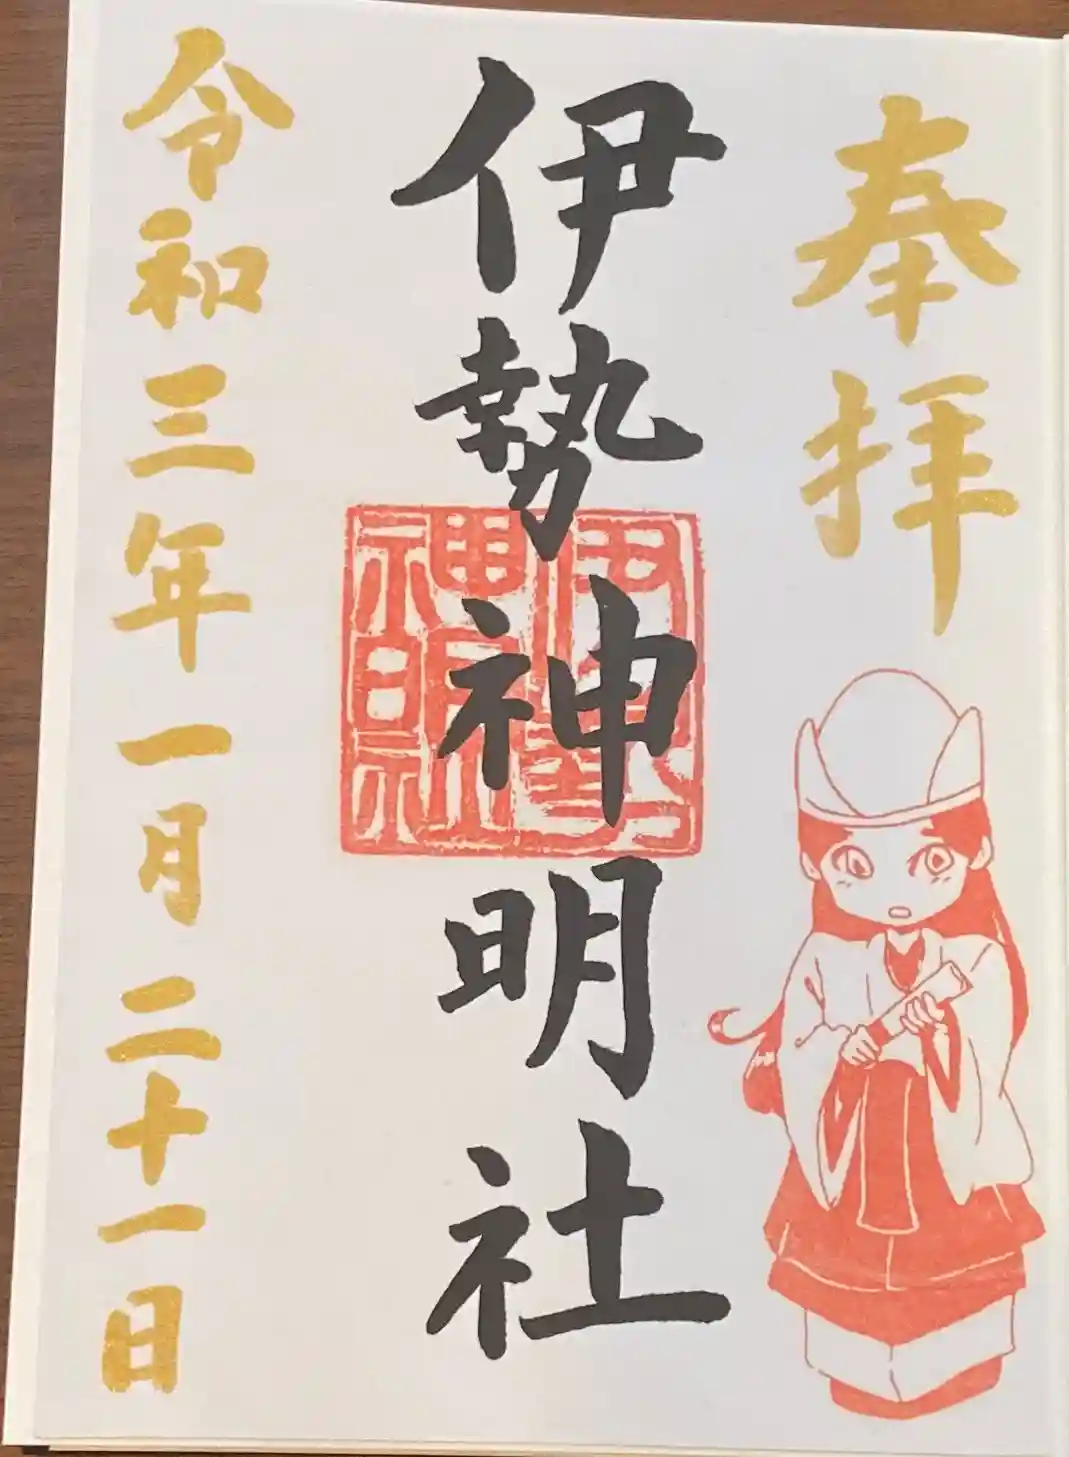 奉拝
伊勢神明社
伊勢
神明社
令和三年一月二十一日